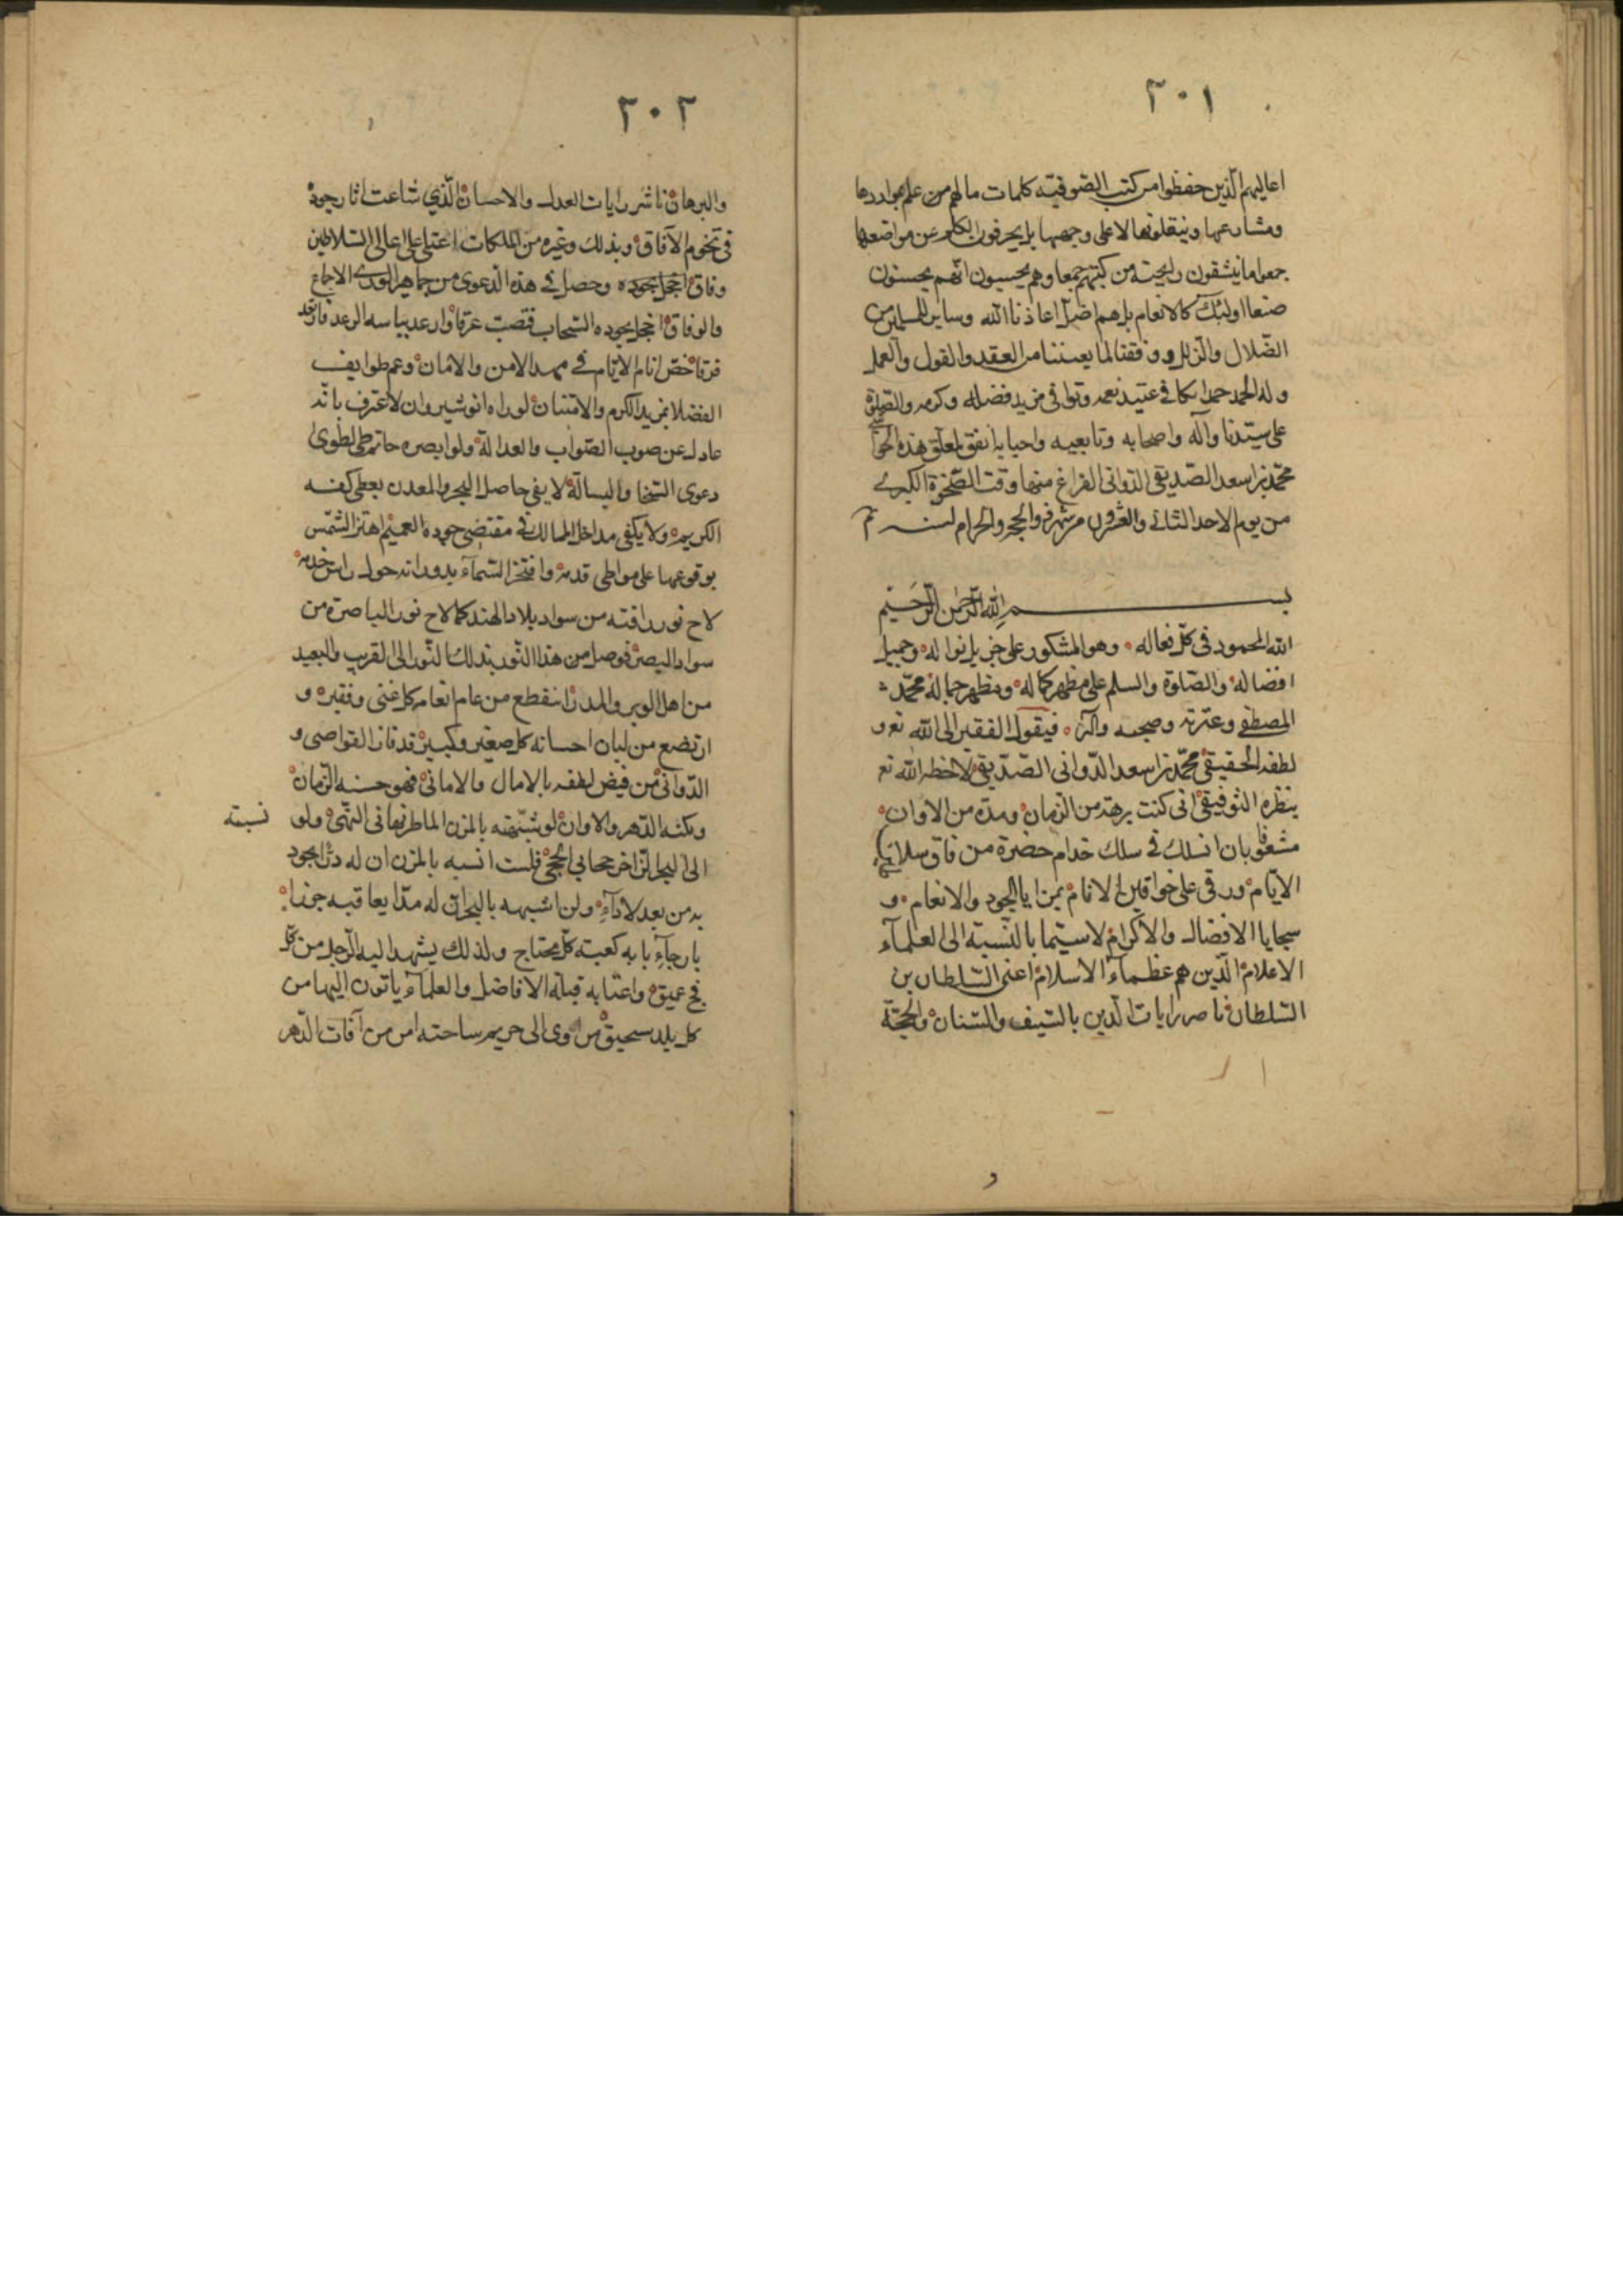 ٢٠١
اعاليهم الذين حفظوا من كتب الصوفية كلمات ما لهم من علم بمواردها
ومشارعها وينقلونها لا على وجهها بل يحرفون الكلم عن مواضعها
جمعوا ما ينشقون رايحته من كتبهم جمعا وهم يحسبون انهم يحسنون
صنعا اولئك كالانعام بل هم اضل اعاذنا الله وساير المسلمين من
الضلال والزلل ووفقنا لما يعيننا من العقد والقول والعمل
وله الحمد حمدا يكافى عتيد نعمه ويوافى مزيد فضله وكرمه والصلوة
على سيدنا وآله واصحابه وتابعيه واحبابه اتفق لمعلق هذه الحواشى
محمد بن اسعد الصديقى الدوانى الفراغ منها وقت الضحوة الكبرى
من يوم الاحد الثانى والعشرون من شهر ذو الحجه والحرام لسنه تم
بسم الله الرحمن الرحيم
الله المحمود فى كل فعاله وهو المشكور على جزيل نواله وجميل
افضاله والصلوة والسلم على مظهر كماله ومظهر جماله محمد
المصطفى وعترته وصحبه وآله فيقول الفقير الى الله تع و
لطفه الحقيقى محمد بن اسعد الدوانى الصديقى لاحظه الله تع
بنظره التوفيقى انى كنت برهة من الزمان ومدة من الاوان
مشغوفا بان انسلك فى سلك خدام حضرة من فاق سلاطين
الايام ورقى على خواقين الانام بمزايا الجود والانعام و
سجايا الافضال والاكرام لا سيما بالنسبة الى العلمآء
الاعلام الذين هم عظمآء الاسلام اعنى السلطان بن
السلطان ناصر رايات الدين بالسيف والسنان والحجة
٢٠٢
والبرهان ناشر رايات العدل والاحسان الذي شاعت اثار جوده
فى تخوم الآفاق وبذلك وغيره من الملكات اعتلى على اعالى السلاطين
وفاق اخجل بجوده وحصل فى هذه الدعوى من جماهير الورى الاجماع
والوفاق اخجل بجوده السحاب فتصبب عرقا وارعد بباسه الرعد فارتعد
فرقا خص انام الايام فى مهد الامن والامان وعم طوايف
الفضلا بمزيد الكرم والامتنان لو راه انوشيروان لاعترف بانه
عادل عن صوب الصواب والعدالة ولو ابصره حاتم طى لطوى
دعوى السخا والبسالة لا يفى حاصل البحر والمعدن بعطى كفه
الكريم ولا يكفى مداخل الممالك فى مقتضى جوده العميم اهتز الشمس
بوقوعها على مواطى قدمه وافتخر السمآء بدورانه حول راس خدمه
لاح نور رافته من سواد بلاد الهند كما لاح نور الباصرة من
سواد البصر فوصل من هذا النور بذلك النور الى القريب والبعيد
من اهل الوبر والمدر انقطع من عام انعامه كل غنى وفقير و
ارتضع من لبان احسانه كل صغير وكبير قد فاز القواصى و
الدوانى من فيض لطفه بالامال والامانى فهو حسنه الزمان
ونكته الدهر والاوان لو شبهته بالمزن الماطر نهانى النهى ولو نسبته
الى البحر الزاخر جحابى الحجى فلست انسبه بالمزن ان له در الجود
به من بعد لادآء ولن اشبهه بالبحر ان له مدا يعاقبه جفا
يا رجآء بابه كعبته كل محتاج ولذلك يشهد اليه الرجل من كل
فج عميق واعتابه قبله الافاضل والعلمآء ياتون اليها من
كل بلد سحيق من اوى الى حريم ساحته امن من آفات الدهر